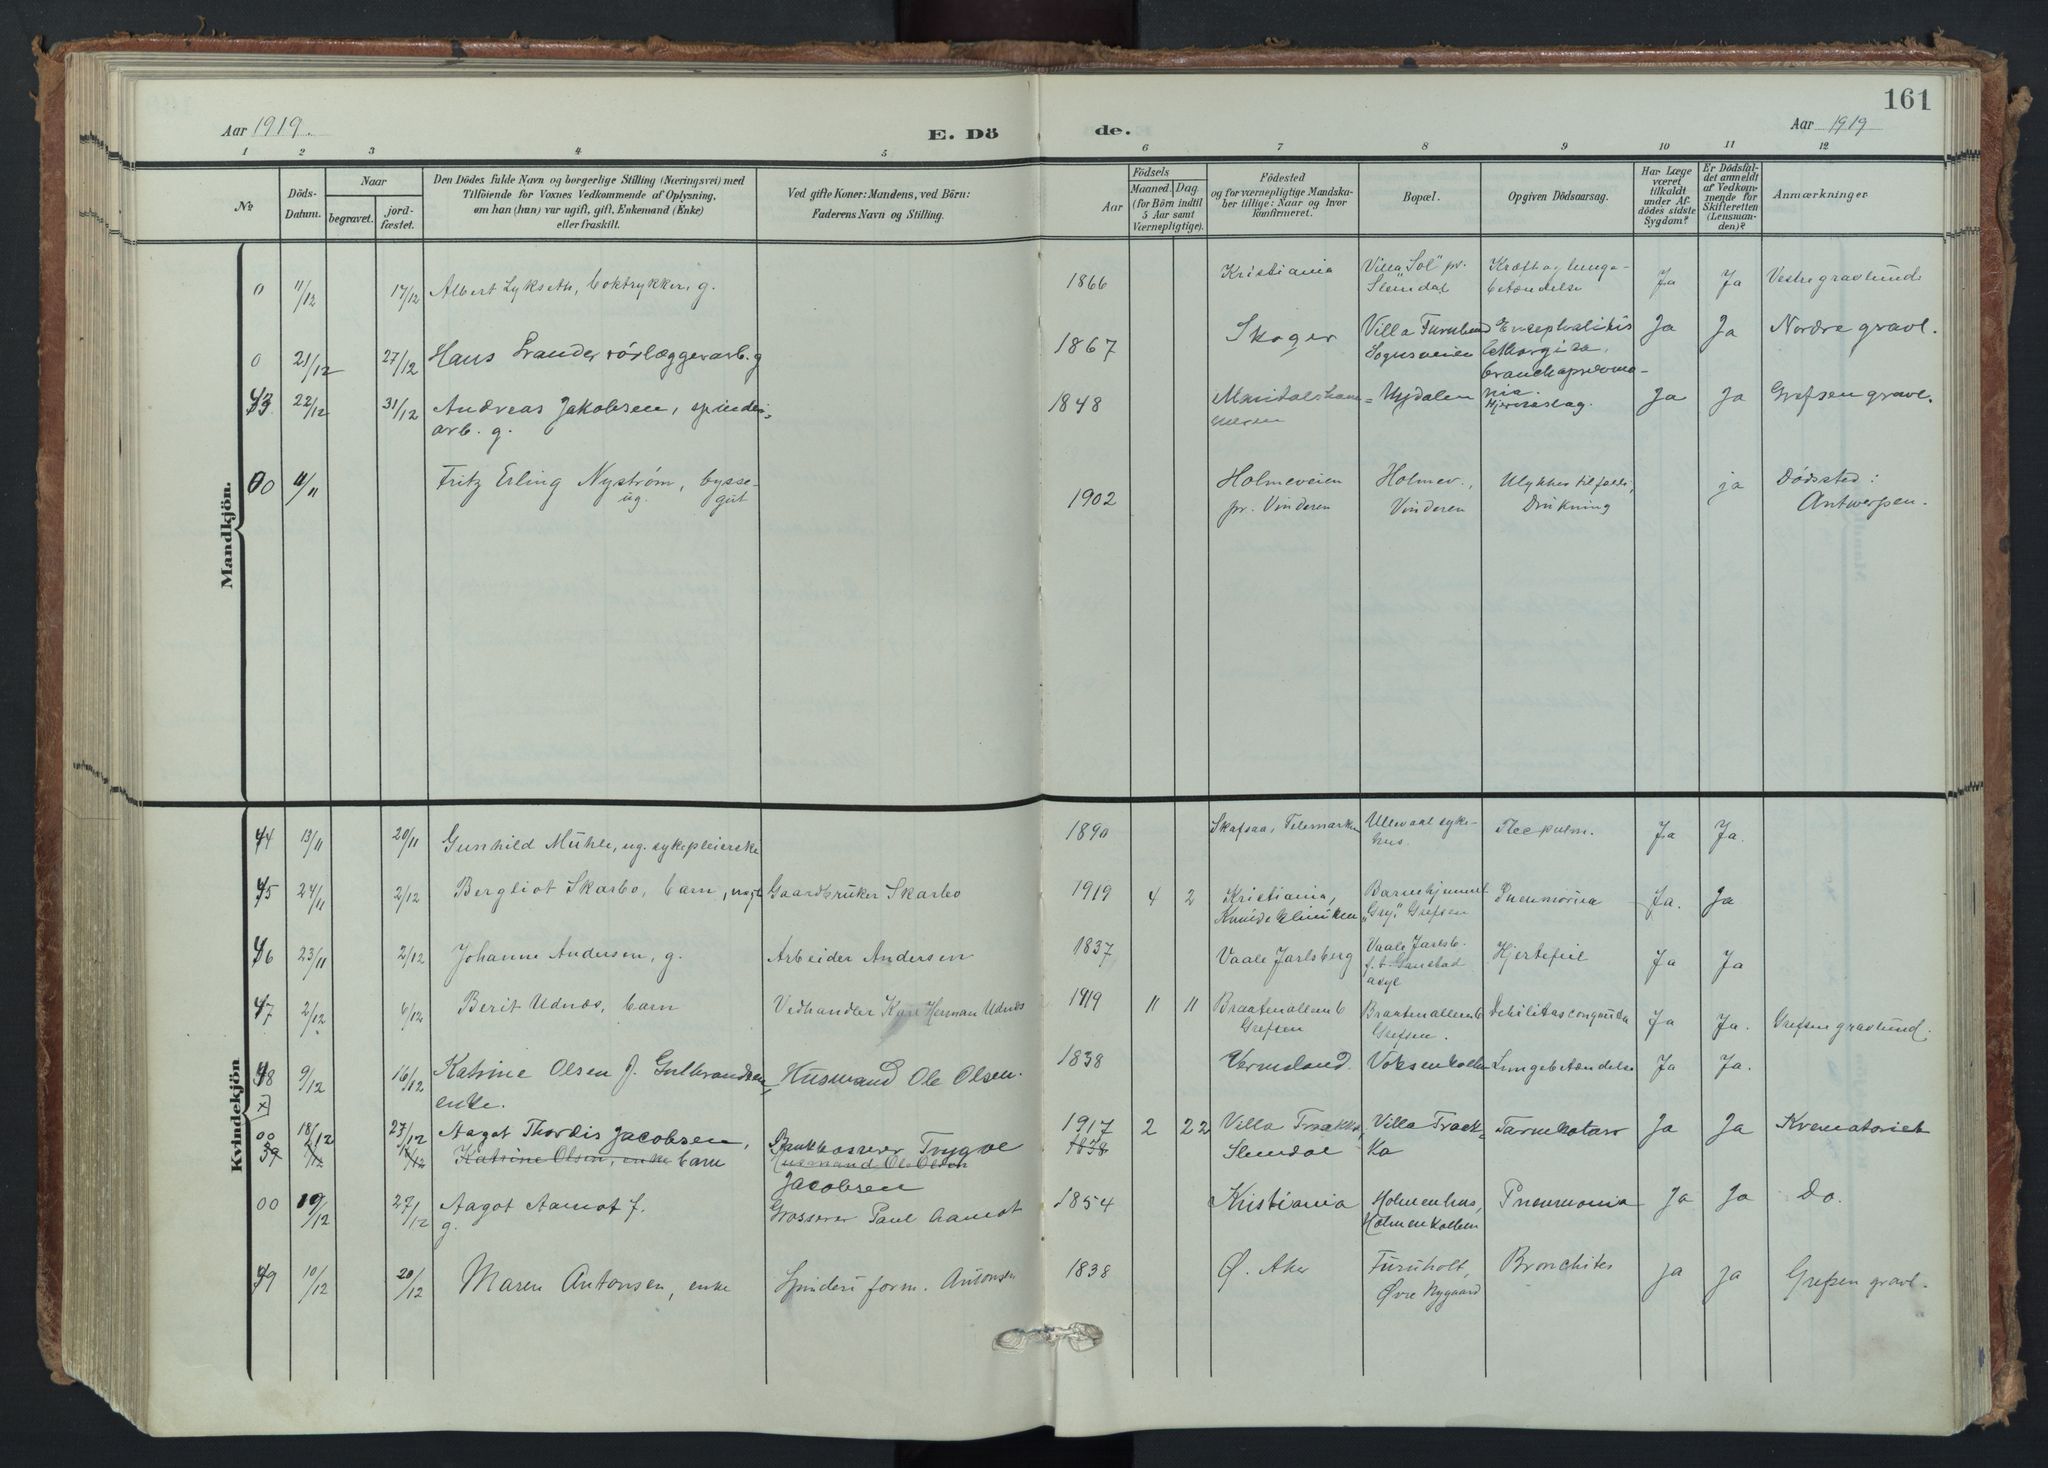 161
Aar 1919.
E. Dö de.
Aar 1919
1 2 3 4 5 6 7 8 9 10 11 12
No.
Döds-Datum.
Naar
begravet.
jordfæstet.
Den Dödes fulde Navn og borgerlige Stilling (Næringsvei) med
Tilföiende for Voxnes Vedkommende af Oplysning,
om han (hun) var ugift, gift, Enkemand (Enke)
eller fraskilt.
Ved gifte Koner: Mandens, ved Börn:
Faderens Navn og Stilling.
Födsels
Aar
Maaned. Dag
(for Börn indtil
5 Aar samt
Værnepligtige).
Födested
og for værnepligtige Mandskaber tillige: Naar og hvor
konfirmeret.
Bopæl.
Opgiven Dödsaarsag.
Har Læge
været
tilkaldt
under Afdödes sidste
Sygdom?
Er Dödsfaldet anmeldt
af Vedkommende for
Skifteretten
(Lensmanden)?
Anmærkninger
Mandkjön.
0 11/12 17/12 Albert Lykseth, boktrykker, g. 1866 Kristiania Villa "Sol" pr. Slemdal Kræft og lungebetændelse Ja Ja Vestre gravlund
0 21/12 27/12 Hans Strander rörlæggerarb. g 1867 Skoger Villa Furulund Sognsveien Encephalitis lethargica, bronchopneumonia Ja Ja Nordre gravl.
43 22/12 31/12 Andreas Jakobsen, spinderiarb. g. 1848 Maridalshammeren Nydalen Hjerneslag. Ja Ja Grefsen gravl.
00 11/11 Fritz Erling Nyström, byssegut ug. 1902 Holmeveien pr. Vinderen Holmev., Vinderen Ulykkestilfælle, Drukning ja Dödssted: Antwerpen.
Kvindekjön
44 13/11 20/11 Gunhild Mühle, ug. sykepleierske 1890 Skafsaa, Telemarken Ullevaal sykehus. Ja Ja.
45 24/11 2/12 Bergliot Skarbo, barn, Gaardbruker Skarbo 1919 4 2 Kristiania, Kvindeklinikken Barnehjemmet "Gry" Grefsen Pneumonia Ja. Ja
46 23/11 2/12 Johanne Andersen, g. Arbeider Andersen 1837 Vaale Jarlsberg Vaale Jarlsb. f. t. Gaustad asyl Hjertefeil Ja Ja
47 2/12 6/12 Berit Udnæs, barn Vedhandler Kare Herman Udnæs 1919 11 11 Braatenalleen 6 Grefsen Braatenalleen 6 Grefsen. Debilitas congenita Ja Ja. Grefsen gravlund.
48 9/12 16/12 Katrine Olsen f. Gulbrandsen, enke. Husmand Ole Olsen. 1838 Vermeland. Voksenkollen Lungebetændelse Ja Ja.
00 18/12 27/12 Aagot Thordis Jacobsen, barn Bankkasserer Trygve Jacobsen 1917 2 22 Villa Trækka, Slemdal Villa Trækka Tarmkatarr Ja Ja Krematoriet
39 Katrine Olsen, enke Husmand Ole Olsen 1838
00 19/12 27/12 Aagot Aamot f. g. Grosserer Paul Aamot 1854 Kristiania Holmenhus, Holmenkollen Pneumonia Ja Ja Do.
49 10/12 20/12 Maren Antonsen, enke Spinderiform. Antonsen 1838 Ø. Aker Furuholt, Øvre Nygaard Bronchites ja ja Grefsen gravl.